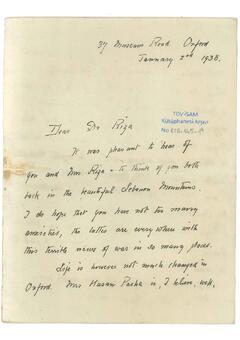 37 Museum Road Oxford
January 2nd 1938.
TDV İSAM
Kütüphanesi Arşivi
No
Dear Dr Riza
It was pleasant to hear of
you and Mrs Riza & to think of you both
back in the beautiful Lebanon Mountains.
I do hope that you have not too many
anxieties, the latter are everywhere with
this terrible news of war in so many places.
Life is however not much changed in
Oxford. Mrs Hasan Pasha is, I believe, well,